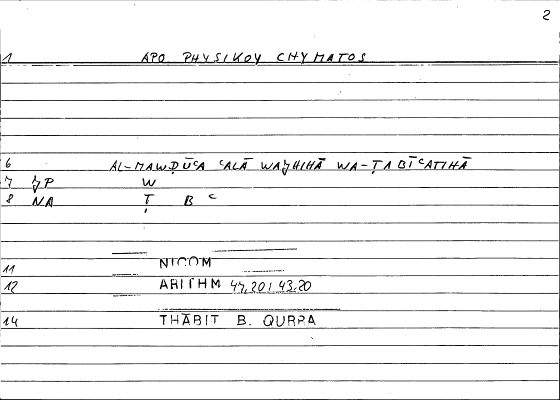 2
1 APO PHYSIKOY CHYMATOS
6 AL-MAWḌŪʿA ʿALĀ WAJHIHĀ WA-ṬABĪʿATIHĀ
7 JP W
8 NA Ṭ B ʿ
11 NICOM
12 ARITHM 47,20/43,20
14 THĀBIT B. QURRA